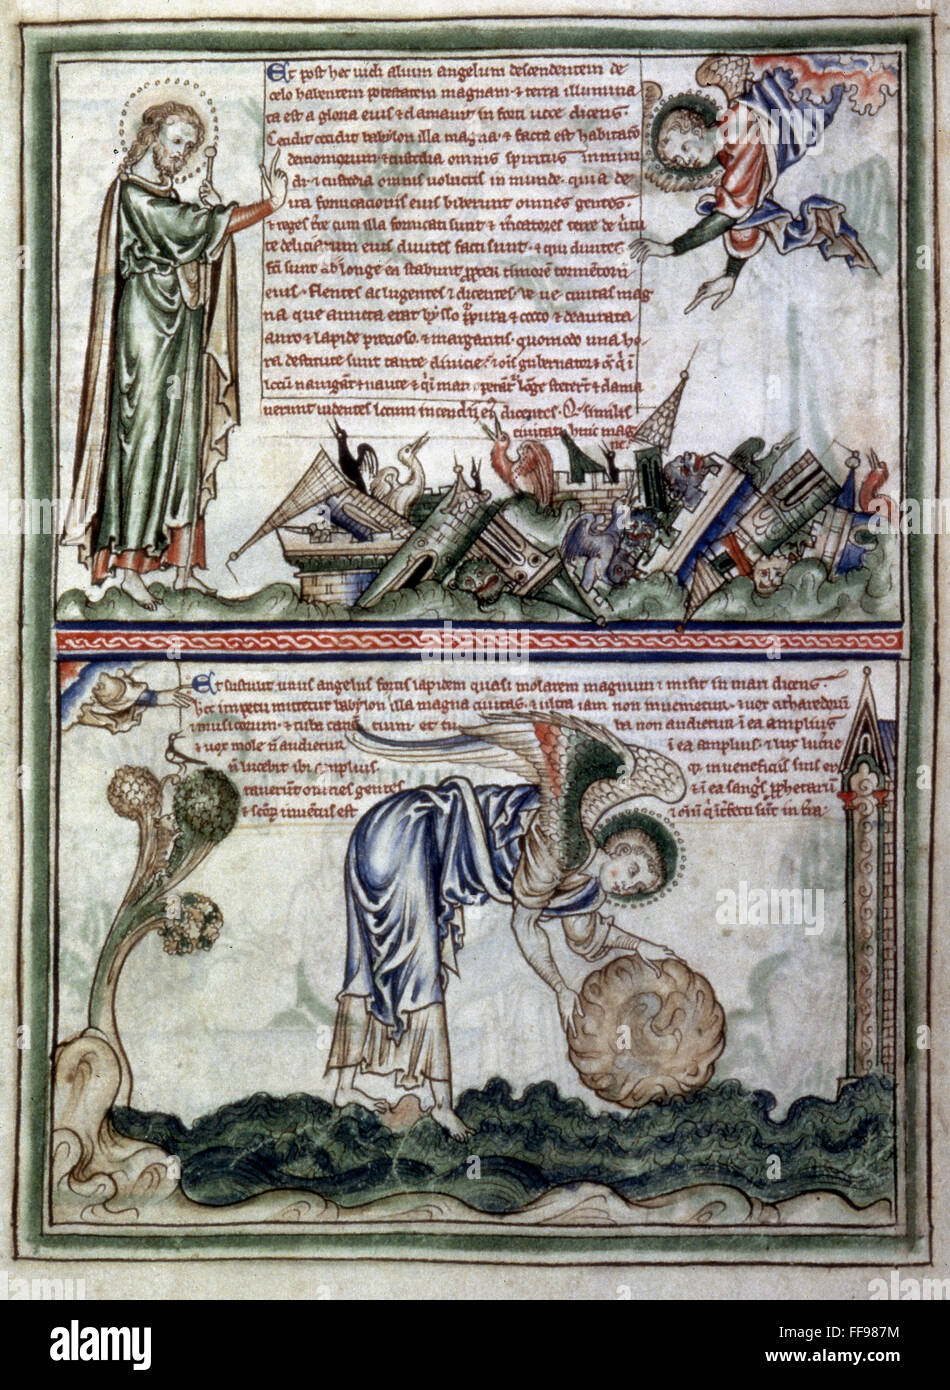 Et post hec uidi alium angelum descendentem de
celo habentem potestatem magnam ⁊ terra illumina
ta est a gloria eius ⁊ clamauit in forti uoce dicens.
Cecidit cecidit babylon illa magna, ⁊ facta est habitatio
demoniorum ⁊ custodia omnis spiritus inmun
di ⁊ custodia omnis uolucris in munde. quia de
ira fornicationis eius biberunt omnes gentes.
⁊ reges terre cum illa fornicati sunt ⁊ mercatores terre de uirtu
te deliciarum eius diuites facti sunt. ⁊ qui diuites
facti sunt ab ea longe stabunt propter timorem tormentorum
eius. flentes ac lugentes ⁊ dicentes. ve ue ciuitas mag
na que amicta erat bysso purpura ⁊ cocco ⁊ deaurata
auro ⁊ lapide precioso. ⁊ margaritis. quomodo una ho
ra destitute sunt tante diuicie. ⁊ omnis gubernator ⁊ omnis qui in
locum nauigant ⁊ naute ⁊ qui mari operantur longe steterunt ⁊ clama
uerunt uidentes locum incendii eius dicentes. Que similis
ciuitati huic mag
ne.
Et sustulit unus angelus fortis lapidem quasi molarem magnum ⁊ misit in mari dicens.
hoc impetu mittetur babylon illa magna ciuitas, ⁊ ultra iam non inuenietur. ⁊ uox citharedorum
⁊ musicorum. ⁊ tuba canentium ⁊ tu ba non audietur in ea amplius
⁊ uox mole non audietur in ea amplius. ⁊ lux lucerne
non lucebit ibi amplius. quia in ueneficiis suis er
rauerunt omnes gentes ⁊ in ea sanguis prophetarum
⁊ sanctorum inuentus est ⁊ omnium qui interfecti sunt in terra
alamy
Image ID: FF987M
www.alamy.com